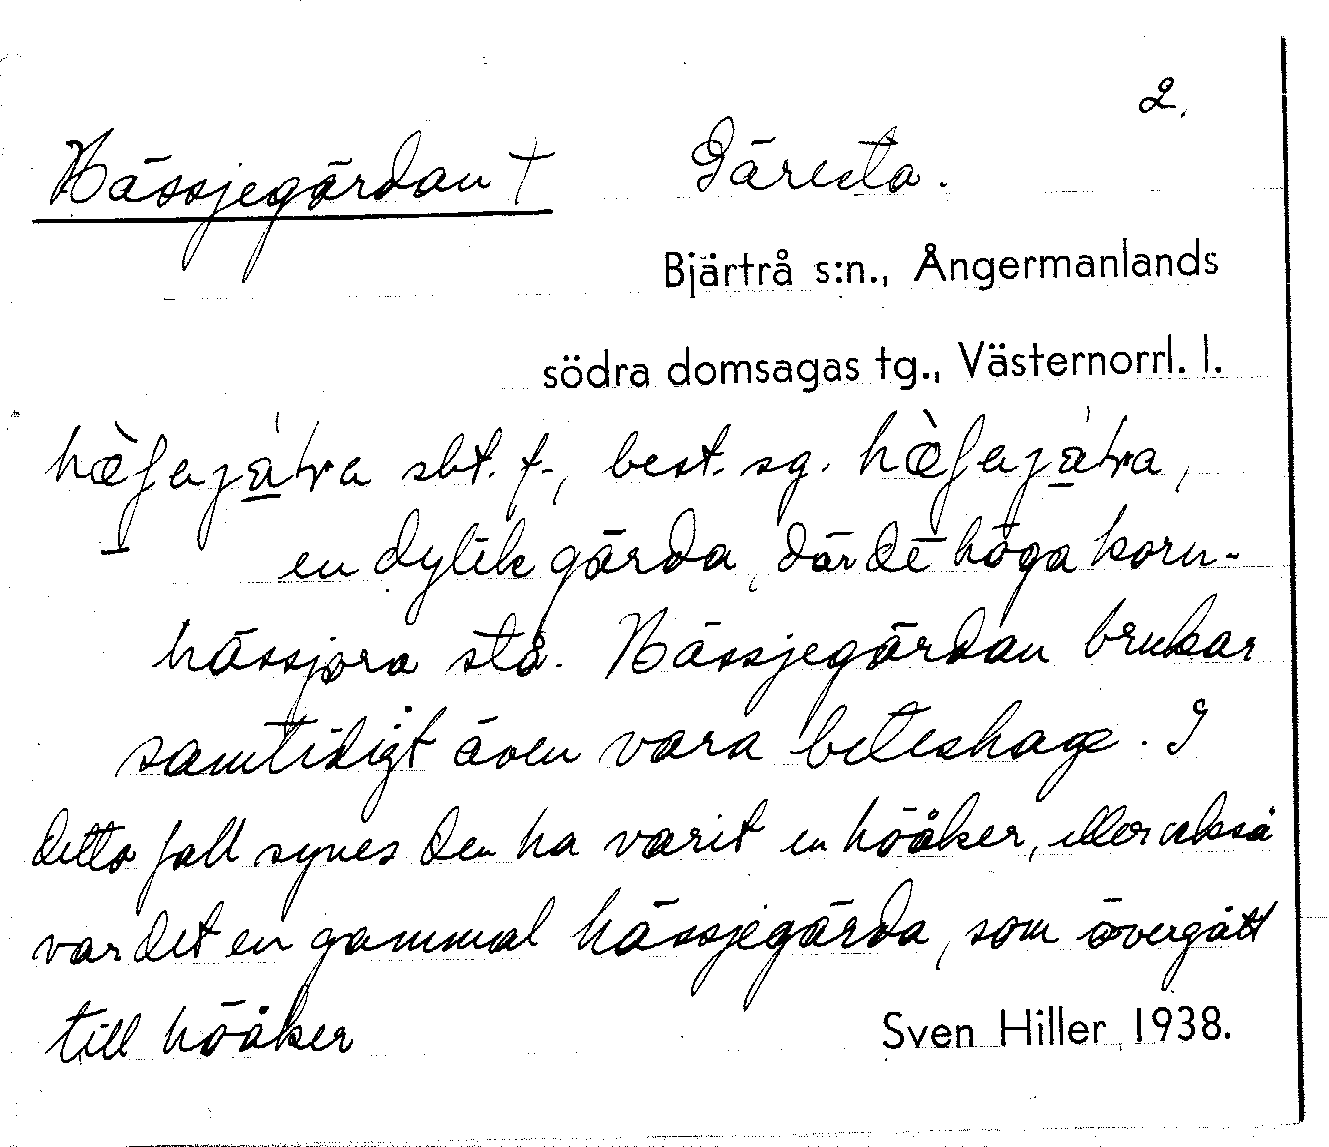 2.
Hässjegärdan † Gäresta.
Bjärtrå s:n., Ångermanlands
södra domsagas tg., Västernorrl. l.
sbt. f., best. sg.
en dylik gärda, där de höga korn-
hässjora stå. Hässjegärdan brukar
samtidigt även vara beteshage. I
detta fall synes den ha varit en höåker, eller också
var det en gammal hässjegärda, som övergått
till höåker Sven Hiller 1938.